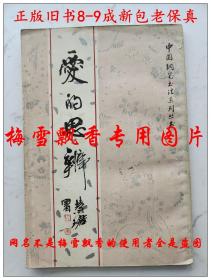 正版旧书8-9成新包老保真
中国钢笔书法系列丛书
爱的思辨
梅雪飘香专用图片
网名不是梅雪飘香的使用者全是盗图